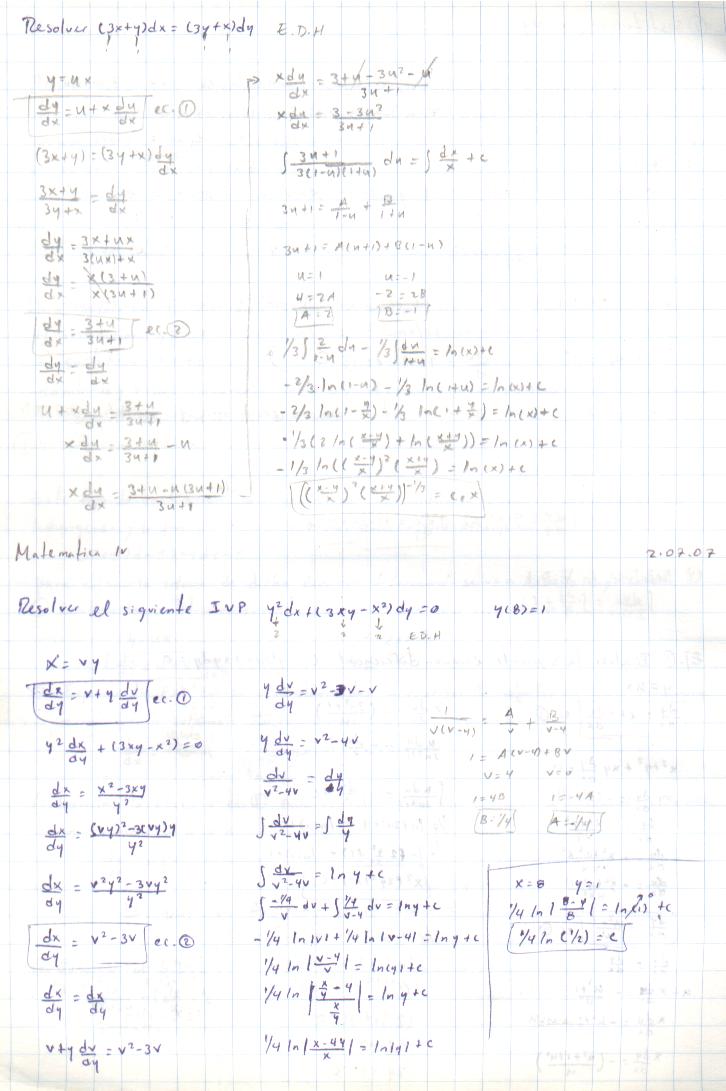 Resolver (3x+y)dx = (3y+x)dy E.D.H
y=ux
dy/dx = u+x du/dx ec.①
(3x+y) = (3y+x) dy/dx
3x+y/3y+x = dy/dx
dy/dx = 3x+ux/3(ux)+x
dy/dx = x(3+u)/x(3u+1)
dy/dx = 3+u/3u+1 ec.②
dy/dx = dy/dx
u+x du/dx = 3+u/3u+1
x du/dx = 3+u/3u+1 - u
x du/dx = 3+u-u(3u+1)/3u+1
x du/dx = 3+u-3u²-u/3u+1
x du/dx = 3-3u²/3u+1
∫ 3u+1/3(1-u)(1+u) du = ∫ dx/x + c
3u+1 = A/1-u + B/1+u
3u+1 = A(u+1)+B(1-u)
u=1 u=-1
4=2A -2=2B
A=2 B=-1
1/3 ∫ 2/1-u du - 1/3 ∫ du/1+u = ln(x)+c
-2/3 ln(1-u) - 1/3 ln(1+u) = ln(x)+c
-2/3 ln(1-y/x) - 1/3 ln(1+y/x) = ln(x)+c
-1/3(2 ln(x-y/x) + ln(x+y/x)) = ln(x)+c
-1/3 ln((x-y/x)²(x+y/x)) = ln(x)+c
((x-y/x)²(x+y/x))^-1/3 = c₁x
Matematica IV 2.07.07
Resolver el siguiente IVP y²dx+(3xy-x²)dy=0 y(8)=1
2 2 2 E.D.H
x=vy
dx/dy = v+y dv/dy ec.①
y² dx/dy + (3xy-x²)=0
dx/dy = x²-3xy/y²
dx/dy = (vy)²-3(vy)y/y²
dx/dy = v²y²-3vy²/y²
dx/dy = v²-3v ec.②
dx/dy = dx/dy
v+y dv/dy = v²-3v
y dv/dy = v²-3v-v
y dv/dy = v²-4v
dv/v²-4v = dy/y
∫ dv/v²-4v = ∫ dy/y
∫ dv/v²-4v = ln y+c
∫ -1/4/v dv + ∫ 1/4/v-4 dv = ln y+c
-1/4 ln|v|+1/4 ln|v-4| = ln y+c
1/4 ln |v-4/v| = ln|y|+c
1/4 ln |x/y - 4 / x/y| = ln y+c
1/4 ln |x-4y/x| = ln|y|+c
1/v(v-4) = A/v + B/v-4
1 = A(v-4)+Bv
v=4 v=0
1=4B 1=-4A
B=1/4 A=-1/4
x=8 y=1
1/4 ln|8-4/8| = ln(1)⁰+c
1/4 ln(1/2) = c